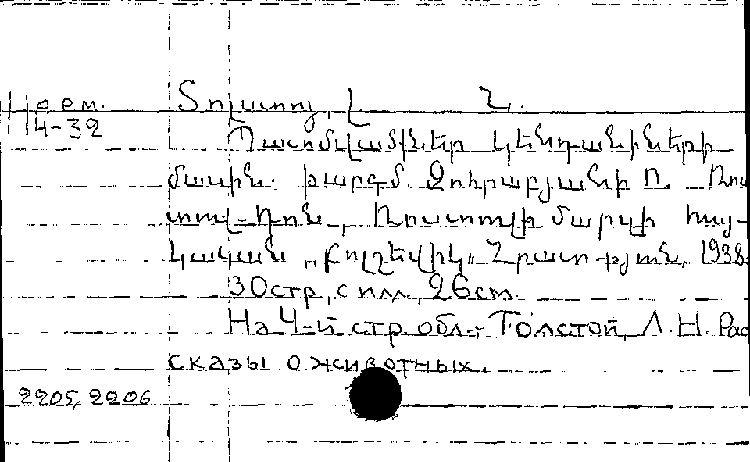 арм. Տոլստոյ, Լ. Ն.
4-32
Պատմվածքներ կենդանիների
մասին. Թարգմ. Զուրաբյանի Ռ. Ռոս
տով-Դոն, Ռոստովի Մարզի հայ-
կական „Բոլշեվիկ" Հրատ-թյան, 1938.
30стр, с илл, 26см.
На 4-й стр. обл.: Толстой, Л. Н. Рас
сказы о животных.
2205, 2206